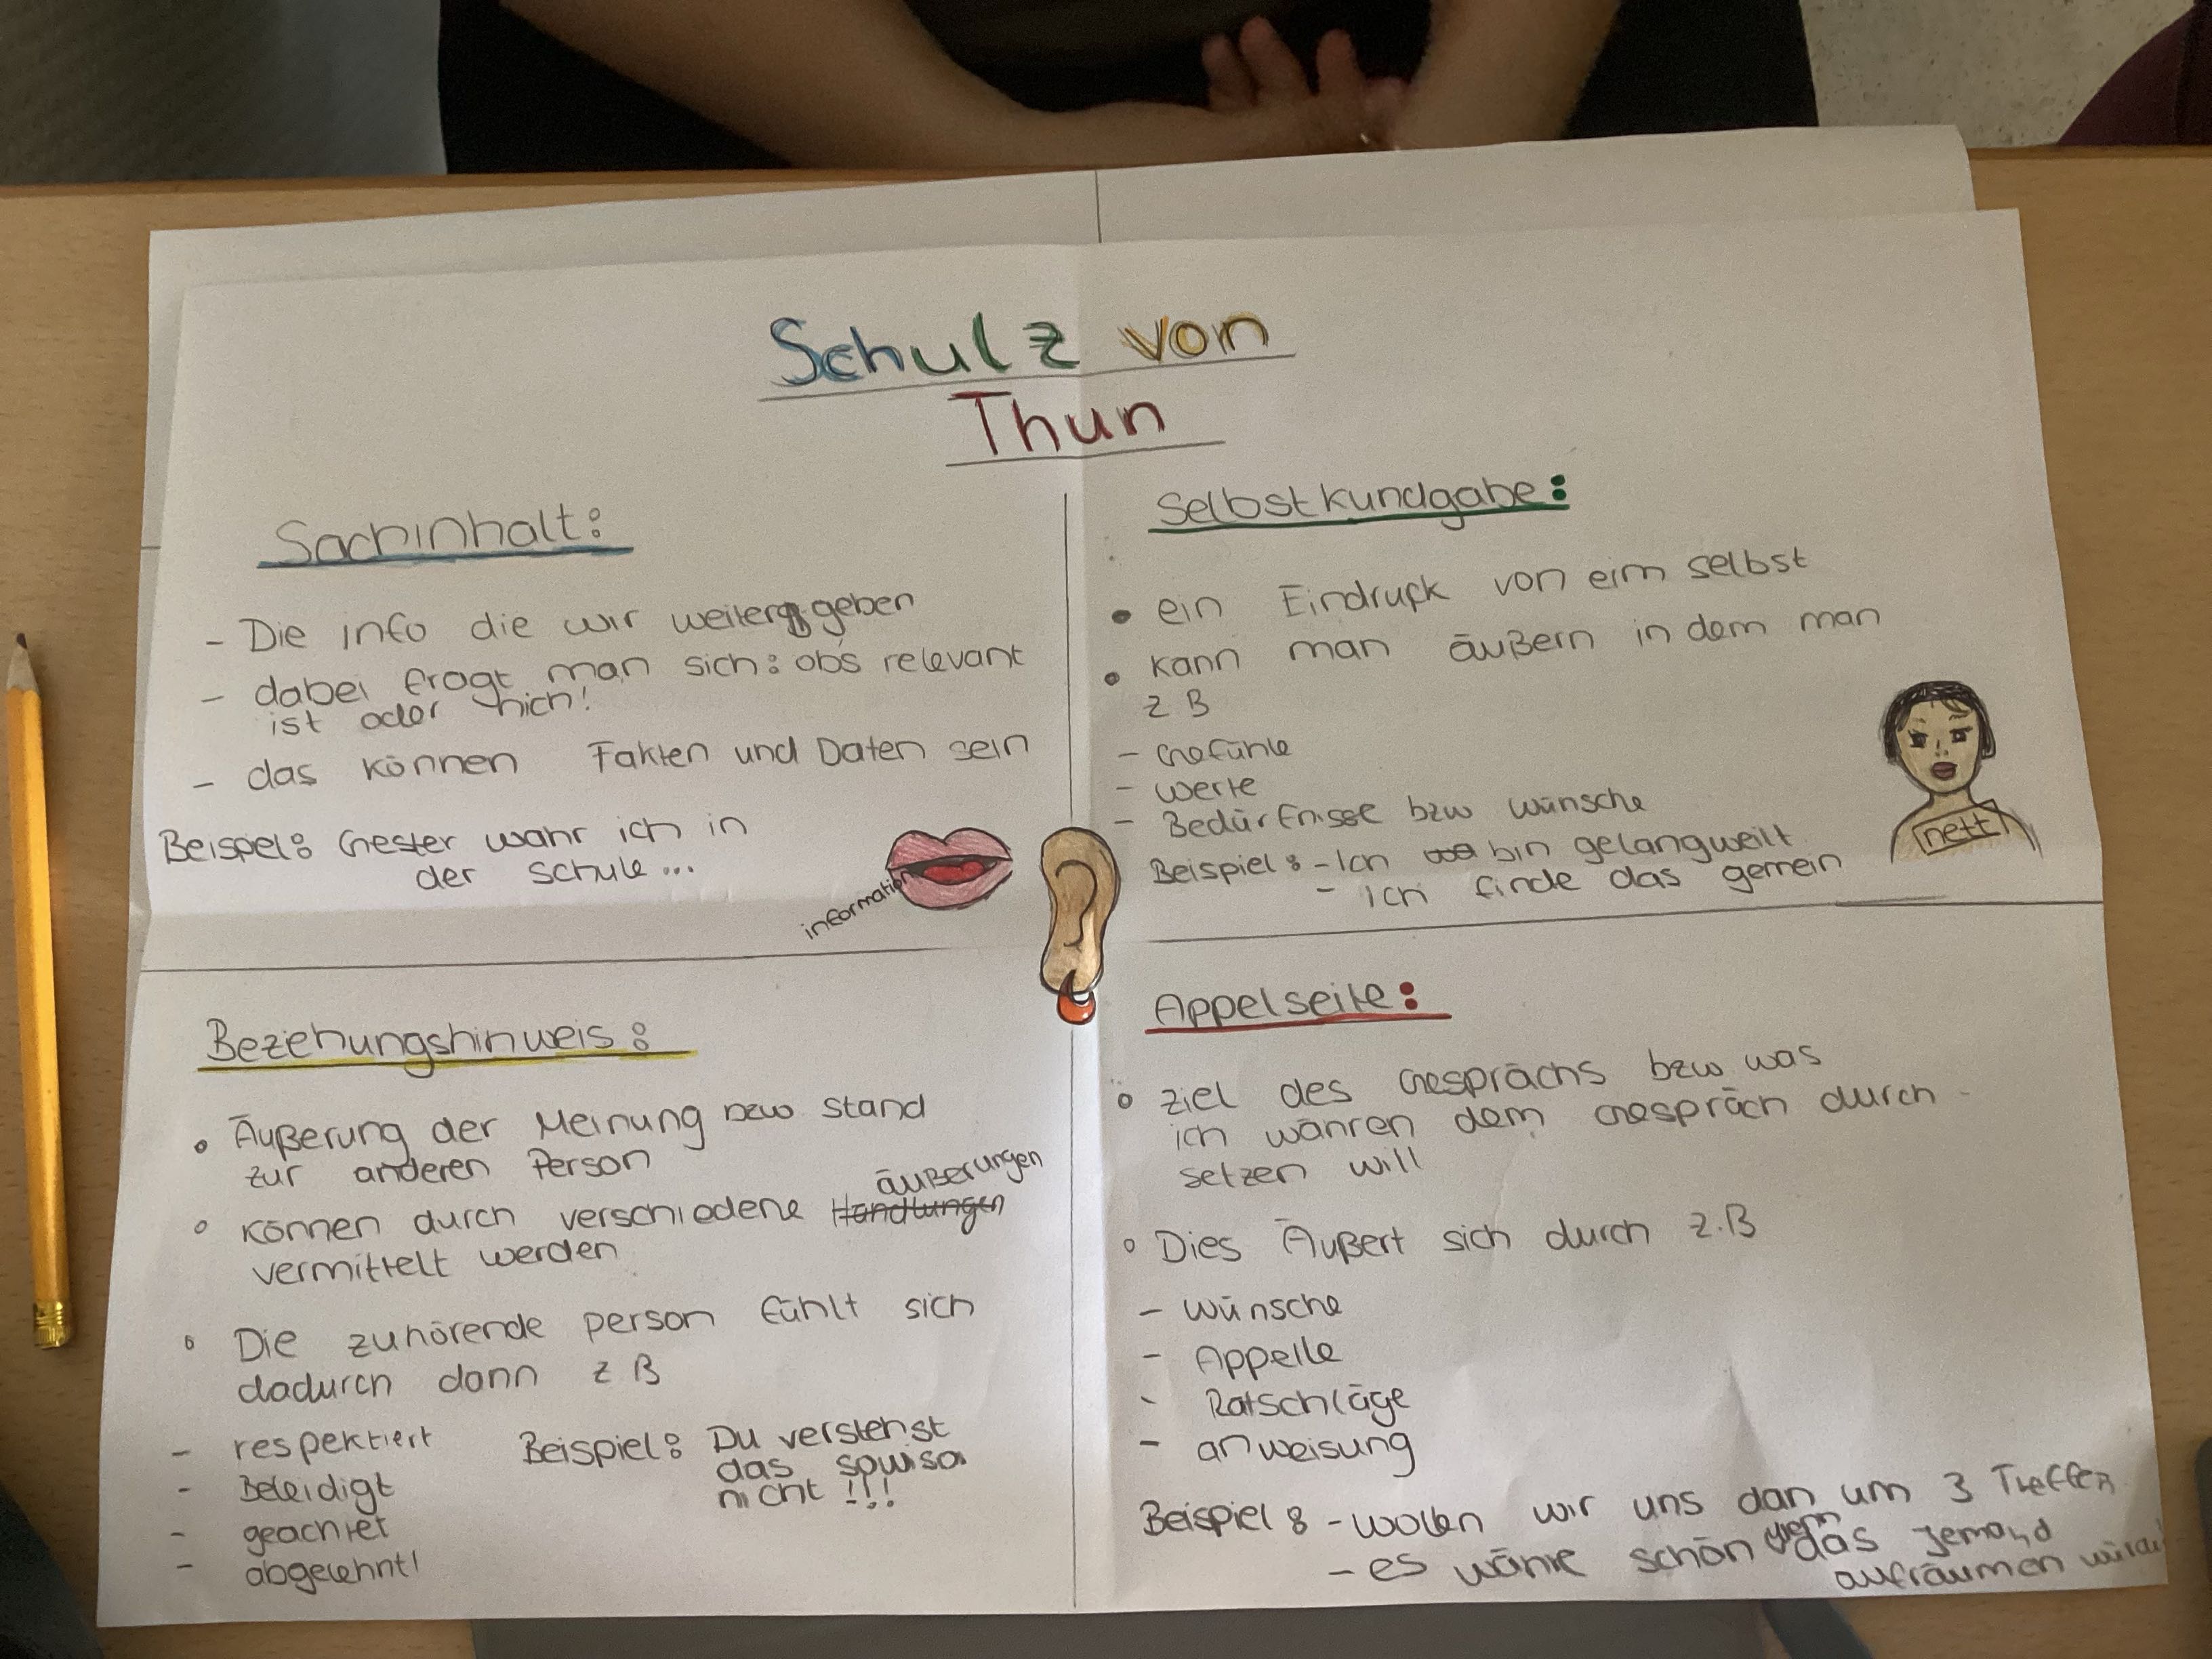 Schulz von
Thun
Sachinhalt:
- Die info die wir weiter geben
- dabei fragt man sich: obs relevant
ist oder nich!
- das können Fakten und Daten sein
Beispiel: Gester wahr ich in
der schule...
information
Selbstkundgabe:
• ein Eindruck von eim selbst
• kann man äußern in dem man
z B
- Gefühle
- werte
- Bedürfnisse bzw wünsche
Beispiel: - Ich bin gelangweilt
- Ich finde das gemein
nett
Bezehungshinweis:
• Äußerung der Meinung bzw stand
zur anderen Person
äußerungen
• können durch verschiedene Handlungen
vermittelt werden
• Die zuhörende person fühlt sich
dadurch dann z B
- respektiert
- Beleidigt
- geachtet
- abgelehnt!
Beispiel: Du verstehst
das sowiso
nicht!!!
Appelseite:
• ziel des Gesprächs bzw was
ich währen dem Gespräch durch
setzen will
• Dies Äußert sich durch z.B
- wünsche
- Appelle
- Ratschläge
- anweisung
Beispiel: - wollen wir uns dan um 3 Treffen
- es währe schön wenn das jemand
aufräumen würde